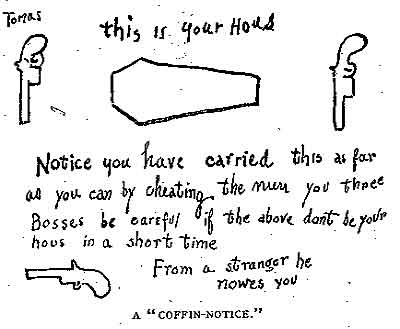 Tomas
this is your Hous
Notice you have carried this as far
as you can by cheating the men you three
Bosses be careful if the above dont be your
hous in a short time
From a stranger he
nowes you
A “COFFIN-NOTICE.”